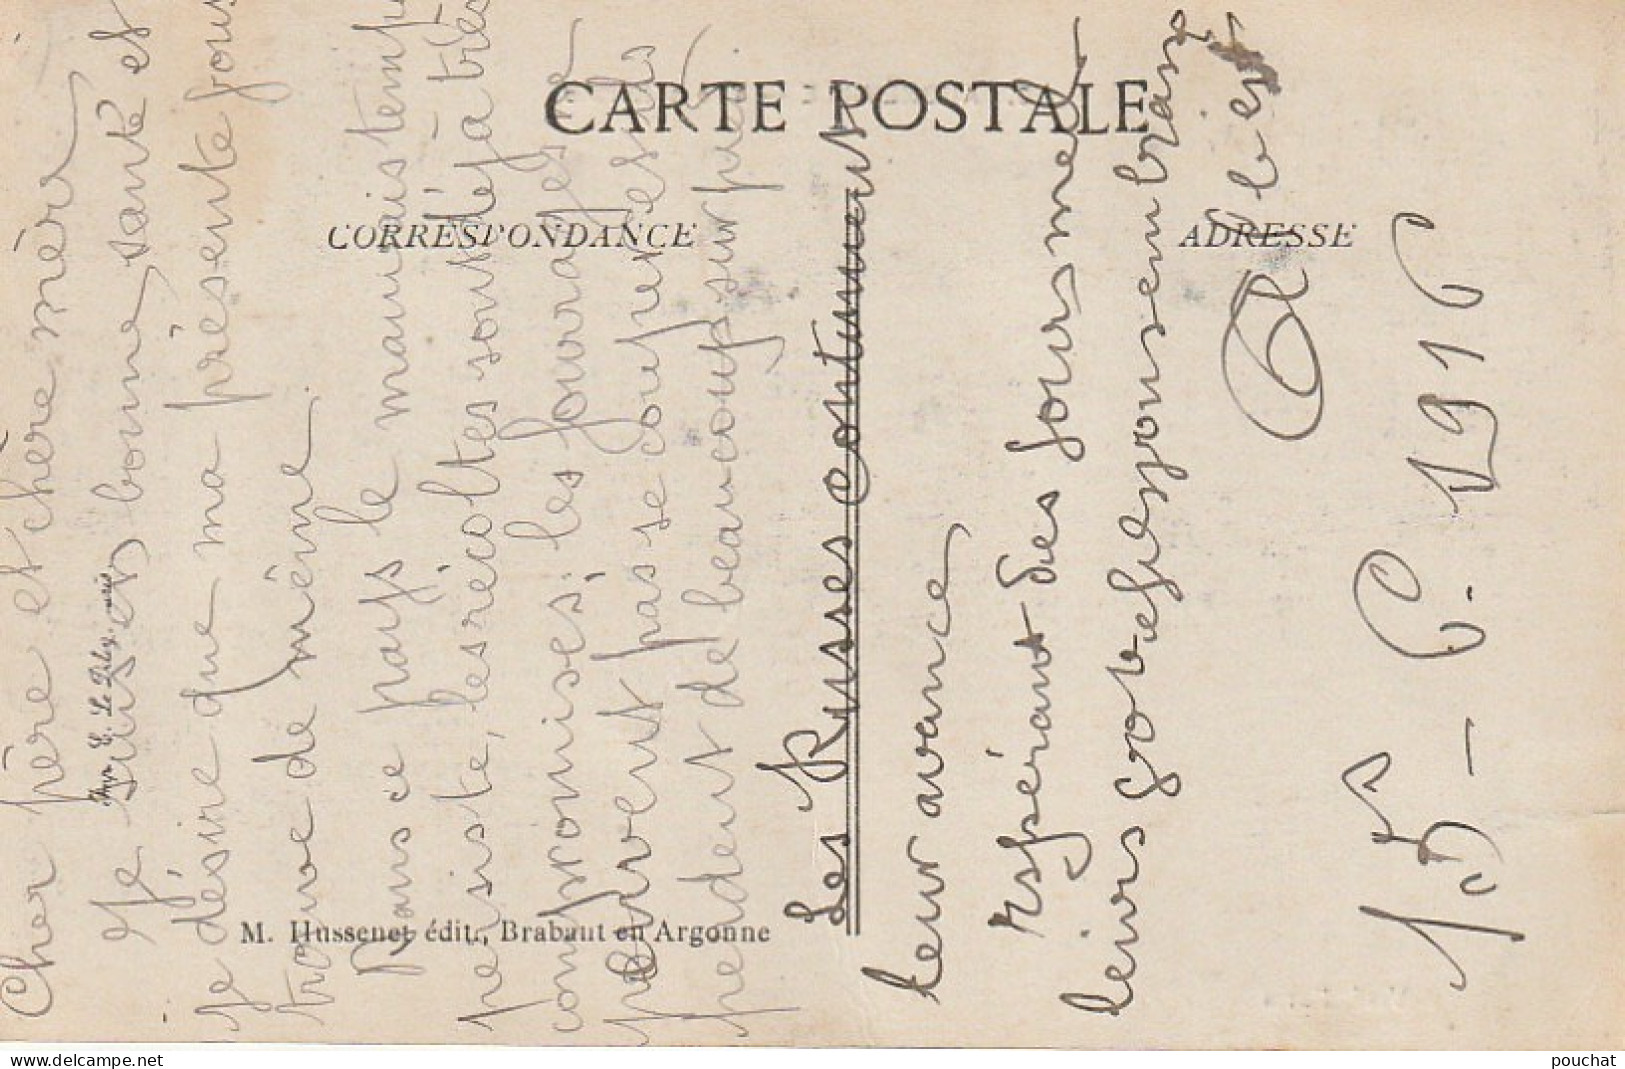 CARTE POSTALE
CORRESPONDANCE
ADRESSE
M. Hussenet édit., Brabant en Argonne
Cher père et chère mèr
Je suis en bonne santé et
je désire que ma présente vous
trouve de même.
Dans ce pays le mauvais temps
persiste, les récoltes sont déjà très
compromises; les fourrages ne
peuvent pas se couper et ils
perdent de beaucoup sur pied
Les Russes continuent
leur avance
Espérant des jours meil
leurs votre fils
15 - 1916
www.delcampe.net
pouchat